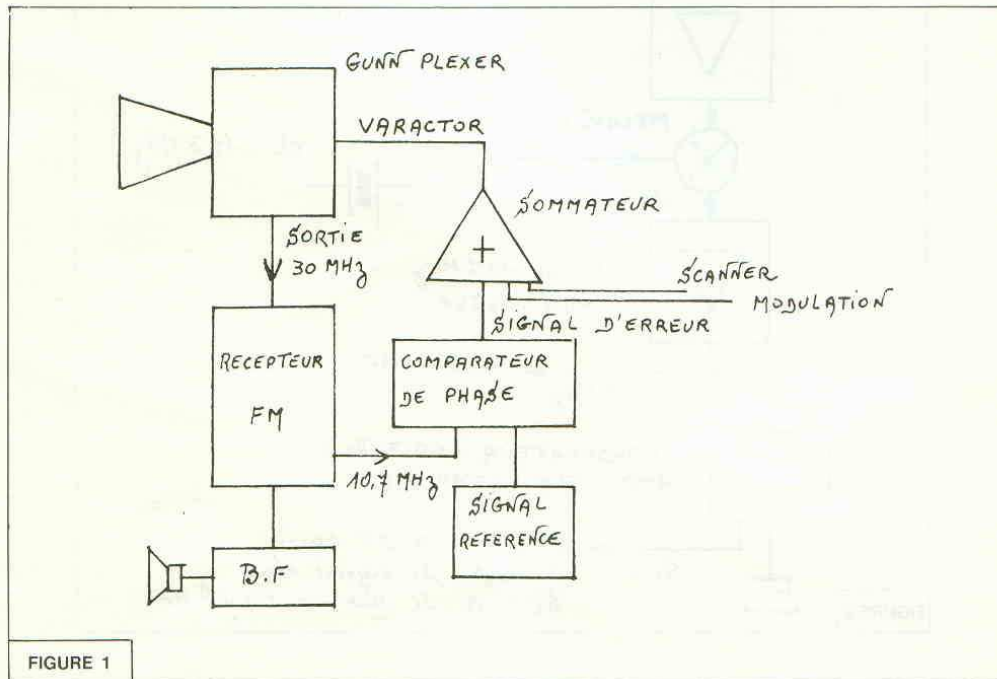 GUNN PLEXER
VARACTOR
SOMMATEUR
+
SORTIE
30 MHz
SCANNER
MODULATION
SIGNAL D'ERREUR
RECEPTEUR
FM
COMPARATEUR
DE PHASE
10,7 MHz
SIGNAL
REFERENCE
B.F
FIGURE 1